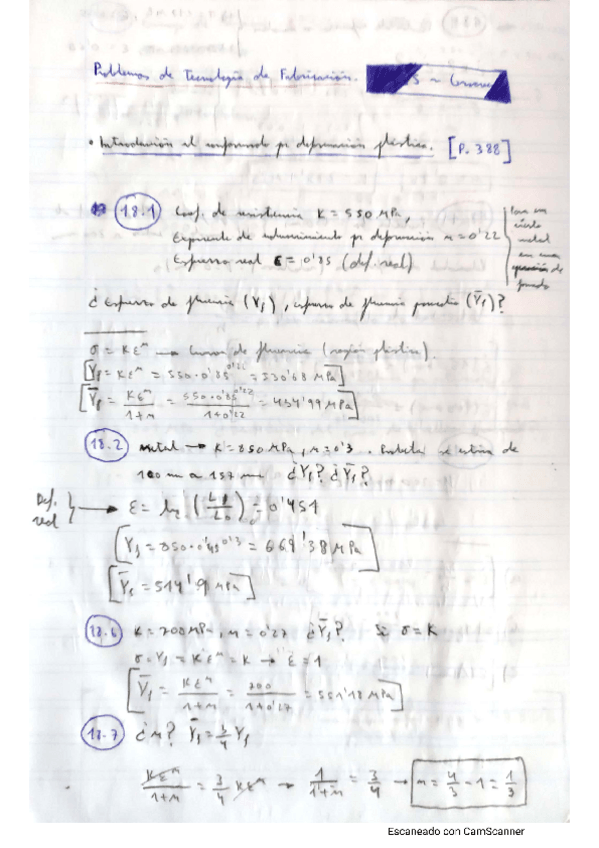 Problemas de Tecnología de Fabricación.
• Introducción al conformado por deformación plástica. [P. 388]
18.1 Coef. de resistencia K = 550 MPa,
Exponente de endurecimiento por deformación n = 0'22
Esfuerzo real ε = 0'85 (def. real)
Para un cierto metal en una operación de
¿Esfuerzo de fluencia (Yf), esfuerzo de fluencia promedio (Ȳf)?
σ = Kεⁿ → Curva de fluencia (región plástica).
[Yf = Kεⁿ = 550·0'85^0'22 = 530'68 MPa]
[Ȳf = Kεⁿ/(1+n) = 550·0'85^0'22/(1+0'22) = 434'99 MPa]
18.2 Metal → K = 850 MPa, n = 0'3. Probeta se estira de
100 mm a 157 mm ¿Yf? ¿Ȳf?
Def. real } → ε = ln (Lf/L0) = 0'451
[Yf = 850·0'45^0'3 = 669'38 MPa]
[Ȳf = 514'9 MPa]
18.6 K = 700 MPa, n = 0'27 ¿Ȳf? Si σ = K
σ = Yf = Kεⁿ = K → ε = 1
[Ȳf = Kεⁿ/(1+n) = 700/(1+0'27) = 551'18 MPa]
18.7 ¿n? Ȳf = 3/4 Yf
Kεⁿ/(1+n) = 3/4 Kεⁿ → 1/(1+n) = 3/4 → n = 4/3 - 1 = 1/3
Escaneado con CamScanner